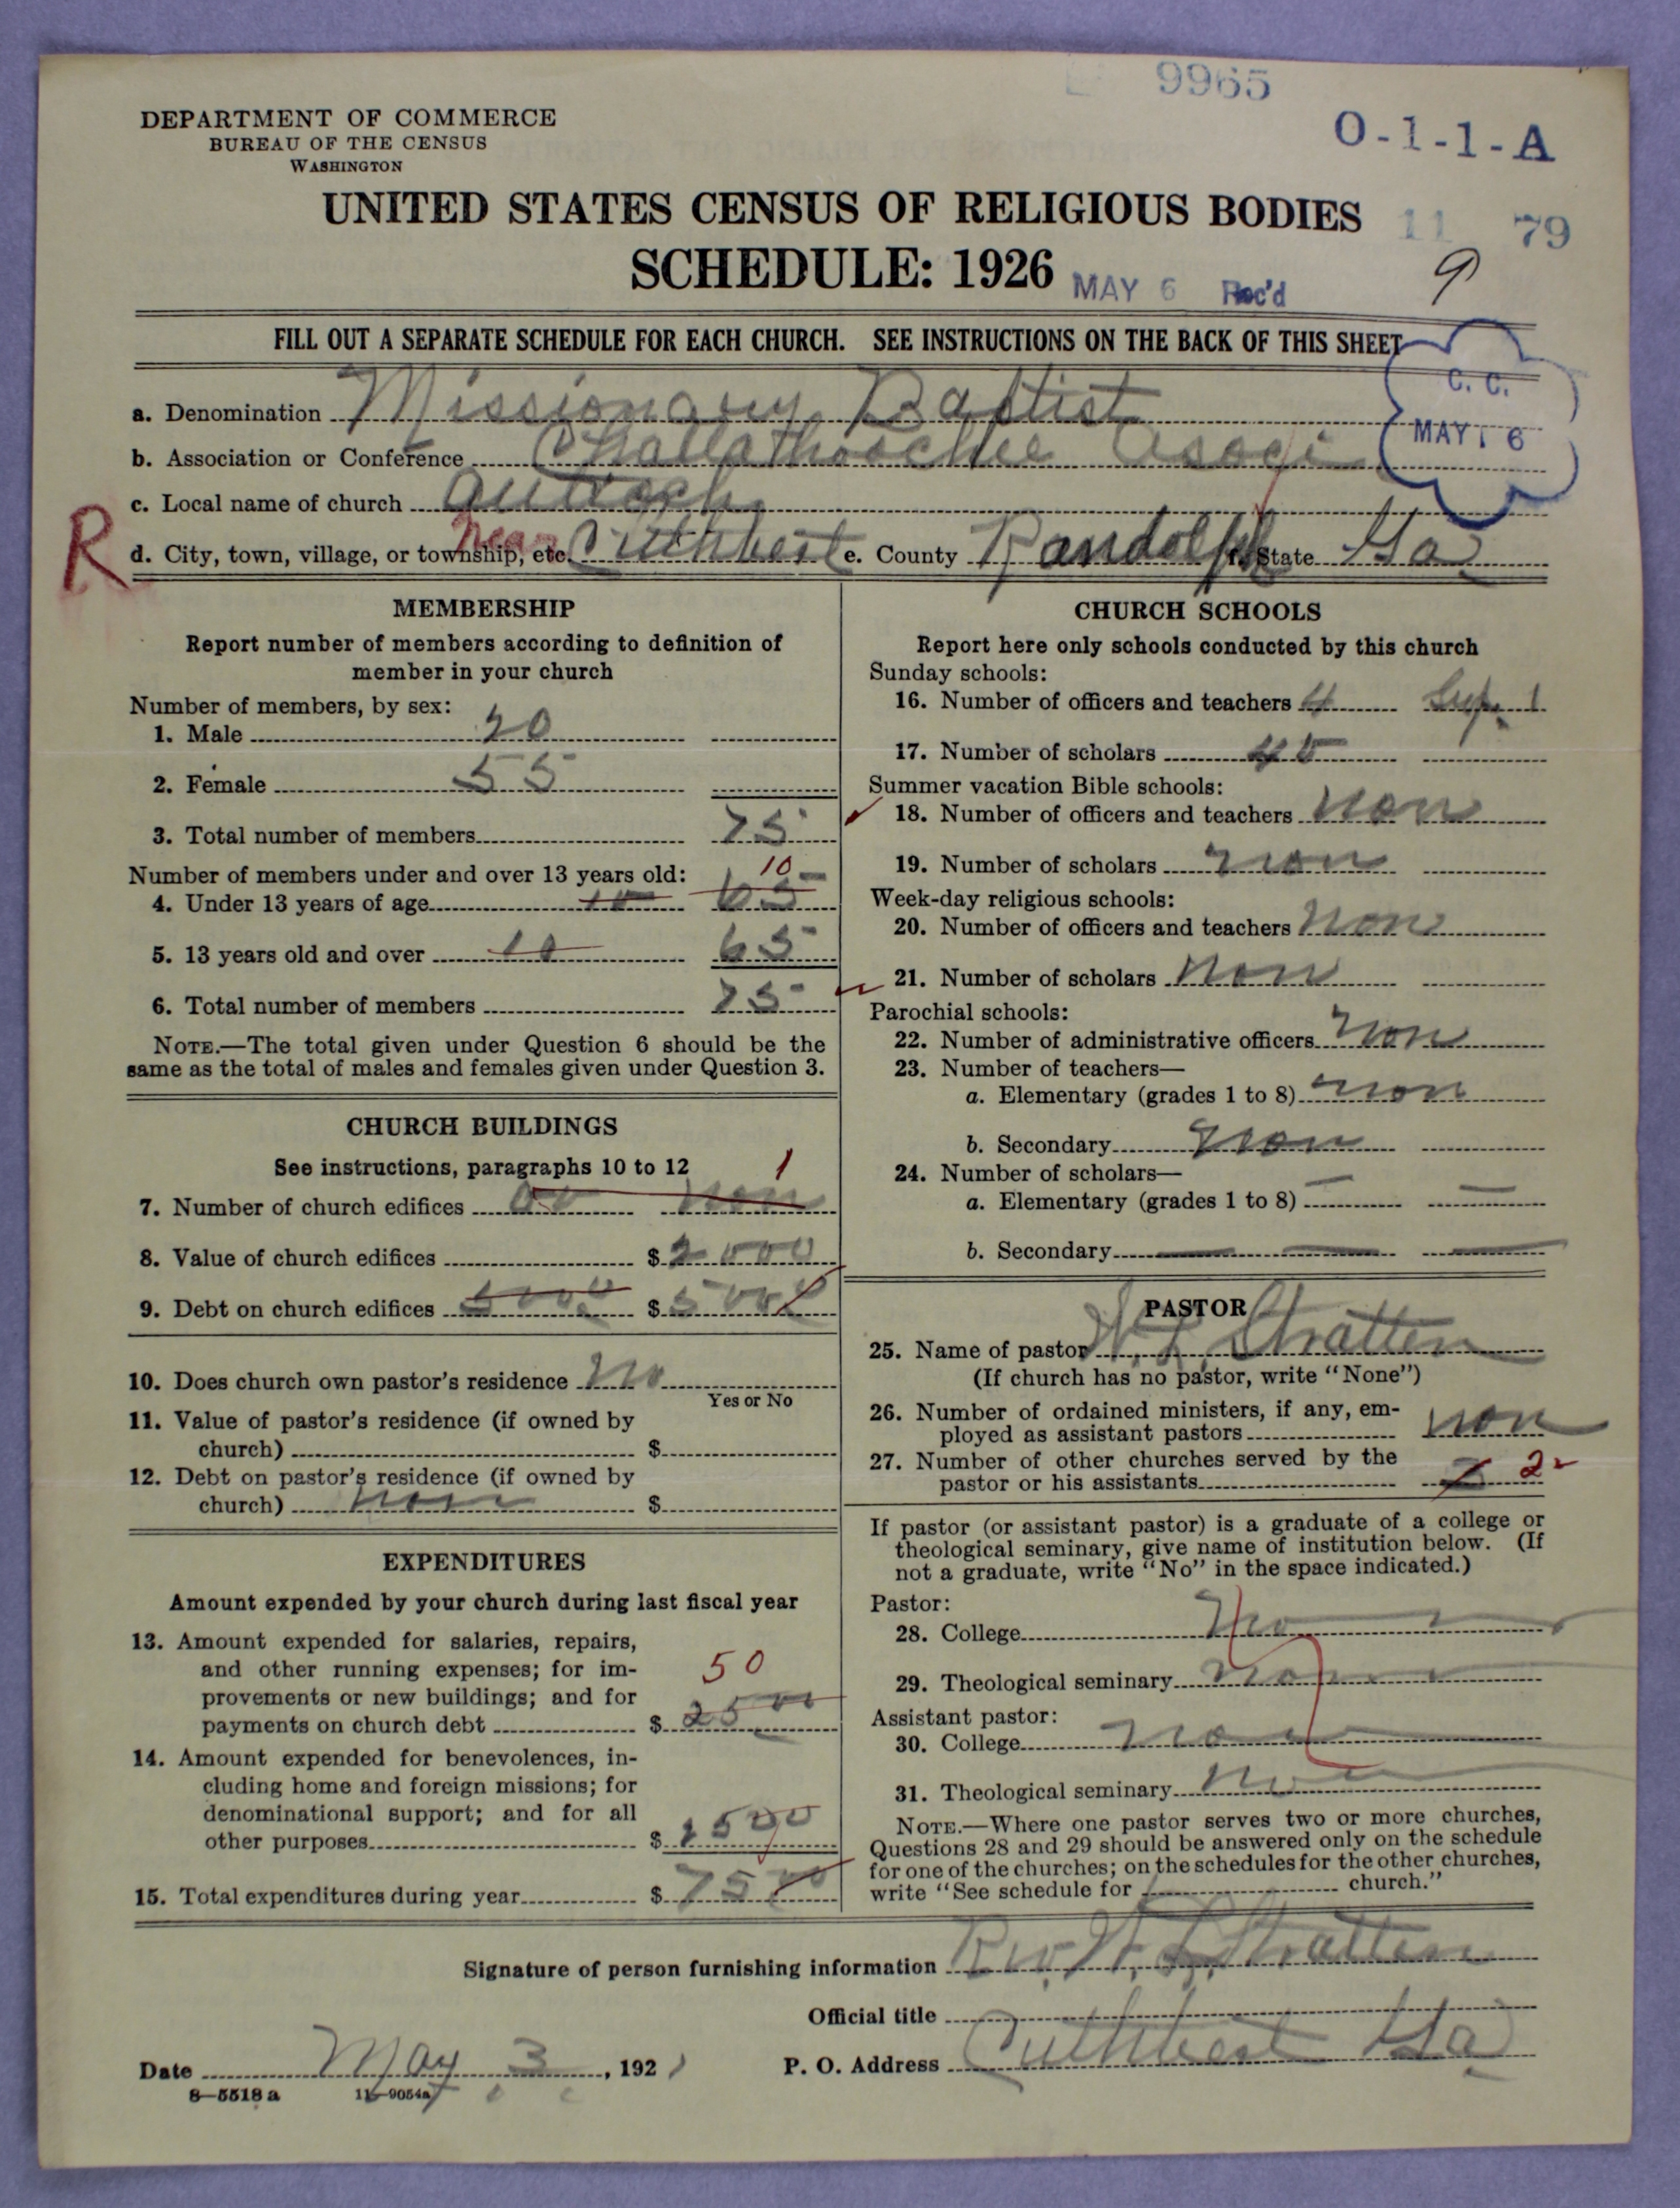 9965
DEPARTMENT OF COMMERCE
BUREAU OF THE CENSUS
WASHINGTON
O-1-1-A
UNITED STATES CENSUS OF RELIGIOUS BODIES
11 79
SCHEDULE: 1926
MAY 6 Rec'd
9
FILL OUT A SEPARATE SCHEDULE FOR EACH CHURCH. SEE INSTRUCTIONS ON THE BACK OF THIS SHEET
C. C.
MAY 6
a. Denomination Missionary Baptist
b. Association or Conference
c. Local name of church
R
d. City, town, village, or township, etc. near Cuthbert e. County Randolph f. State Ga
MEMBERSHIP
Report number of members according to definition of
member in your church
Number of members, by sex:
1. Male 20
2. Female 55
3. Total number of members 75
Number of members under and over 13 years old:
4. Under 13 years of age 10 65 10
5. 13 years old and over 10 65
6. Total number of members 75
NOTE.—The total given under Question 6 should be the
same as the total of males and females given under Question 3.
CHURCH BUILDINGS
See instructions, paragraphs 10 to 12
7. Number of church edifices non 1
8. Value of church edifices $ 2000
9. Debt on church edifices $
10. Does church own pastor's residence no
Yes or No
11. Value of pastor's residence (if owned by
church) $
12. Debt on pastor's residence (if owned by
church) non $
EXPENDITURES
Amount expended by your church during last fiscal year
13. Amount expended for salaries, repairs,
and other running expenses; for im-
provements or new buildings; and for
payments on church debt $ 25 00 50
14. Amount expended for benevolences, in-
cluding home and foreign missions; for
denominational support; and for all
other purposes $
15. Total expenditures during year $ 75 00
CHURCH SCHOOLS
Report here only schools conducted by this church
Sunday schools:
16. Number of officers and teachers 4 Sup. 1
17. Number of scholars 45
Summer vacation Bible schools:
18. Number of officers and teachers non
19. Number of scholars non
Week-day religious schools:
20. Number of officers and teachers non
21. Number of scholars non
Parochial schools:
22. Number of administrative officers non
23. Number of teachers—
a. Elementary (grades 1 to 8) non
b. Secondary non
24. Number of scholars—
a. Elementary (grades 1 to 8) — —
b. Secondary — — —
PASTOR
25. Name of pastor W. L. Stratten
(If church has no pastor, write "None")
26. Number of ordained ministers, if any, em-
ployed as assistant pastors non
27. Number of other churches served by the
pastor or his assistants 2
If pastor (or assistant pastor) is a graduate of a college or
theological seminary, give name of institution below. (If
not a graduate, write "No" in the space indicated.)
Pastor:
28. College no
29. Theological seminary non
Assistant pastor:
30. College non
31. Theological seminary non
NOTE.—Where one pastor serves two or more churches,
Questions 28 and 29 should be answered only on the schedule
for one of the churches; on the schedules for the other churches,
write "See schedule for church."
Signature of person furnishing information Rev. W. L. Stratten
Official title
Date May 3, 192
P. O. Address Cuthbert Ga
8—5518 a 11—9054a